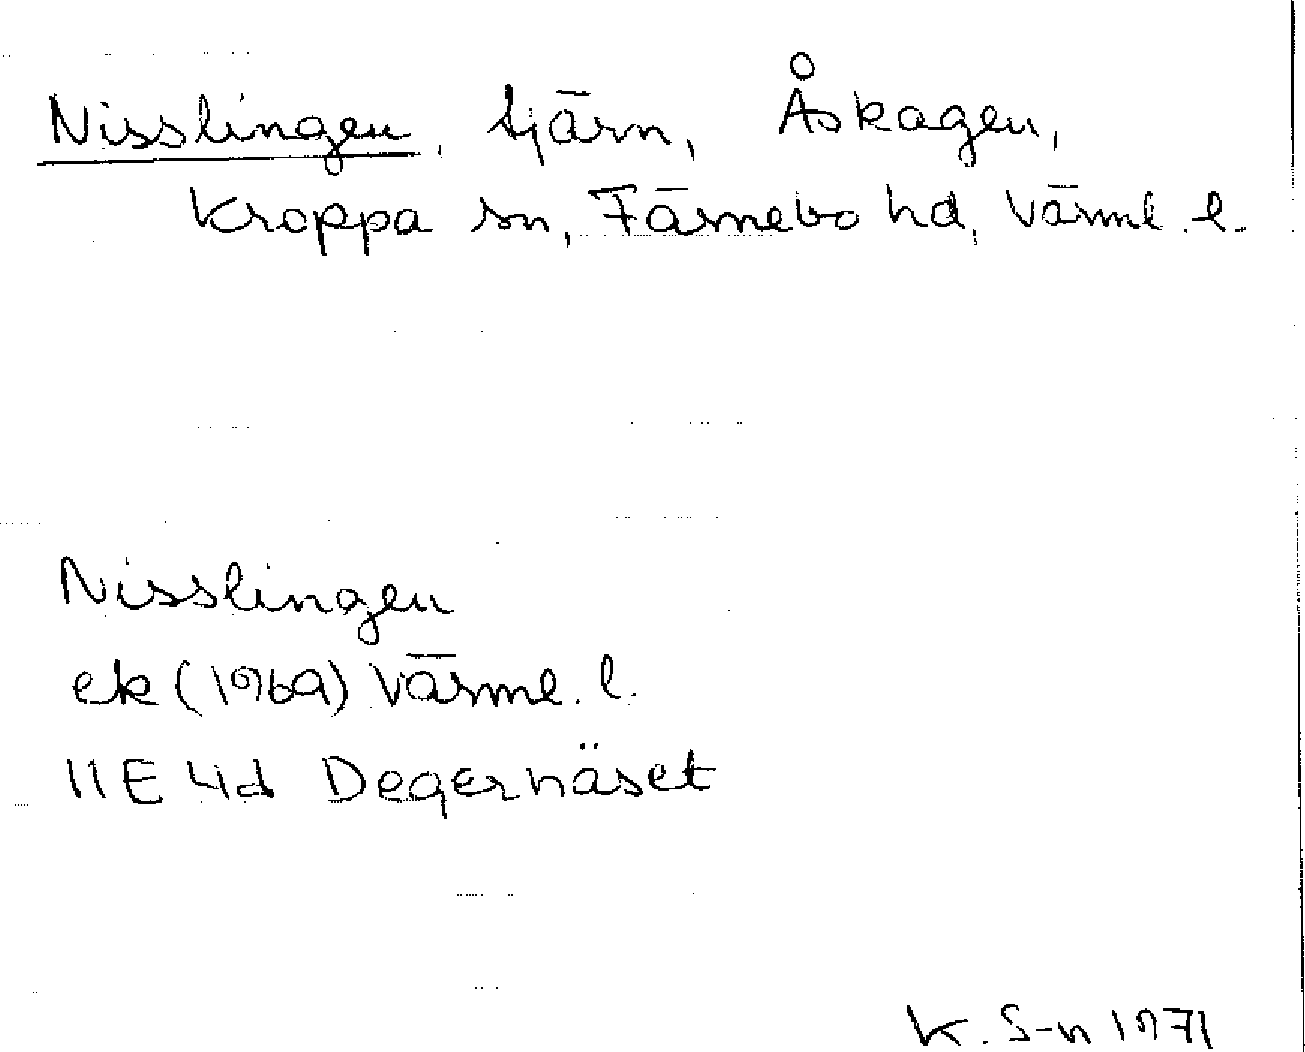 Nisslingen, tjärn, Åskagen,
Kroppa sn, Färnebo hd, Värml. l.
Nisslingen
ek (1969) Värml. l.
11E 4d Degernäset
K. S-n 1971